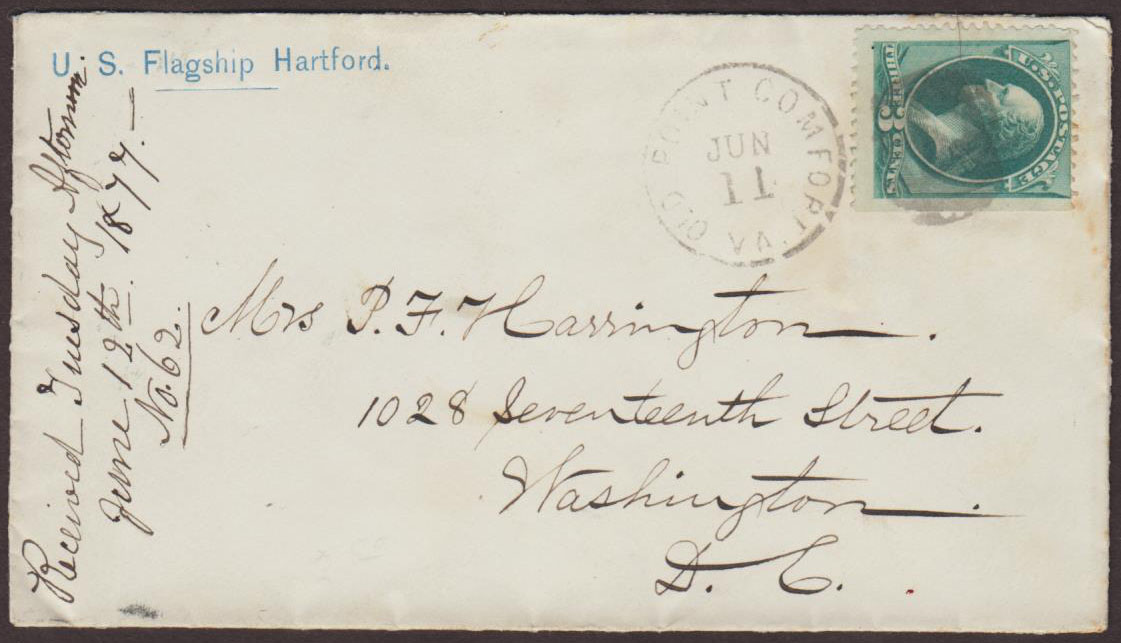 U. S. Flagship Hartford.
OLD POINT COMFORT, VA.
JUN
11
U.S. POSTAGE
THREE
3
CENTS
Received Tuesday Afternoon.
June 12th. 1877.
No. 62.
Mrs P. F. Harrington.
1028 Seventeenth Street.
Washington.
D. C.